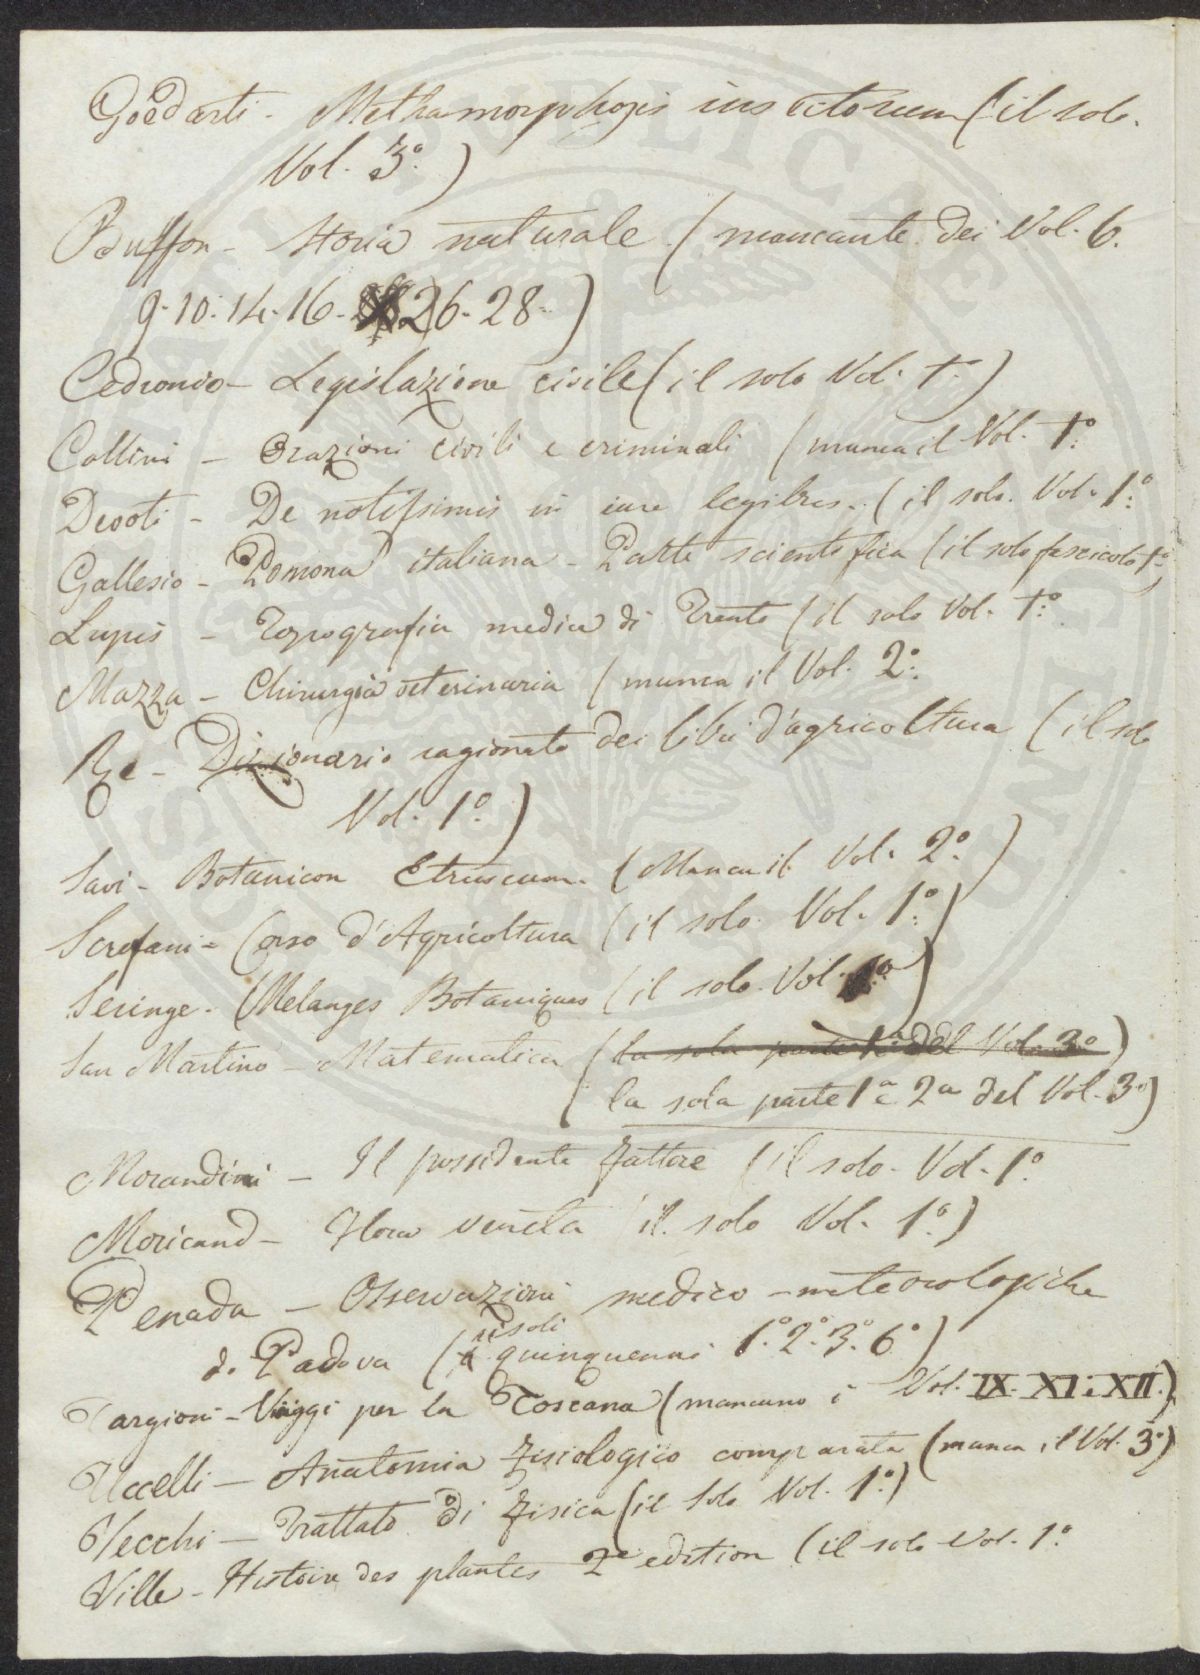 Goedarti - Methamorphosis insectorum (il solo.
Vol. 3º.)
Buffon - Storia naturale (mancante dei Vol. 6.
9. 10. 14. 16. 26. 28.)
Cedronio - Legislazione civile (il solo Vol. 1º.)
Collini - Orazioni civili e criminali (manca il Vol. 1º.
Devoti - De notissimis in iure legibus. (il solo. Vol. 1º.
Gallesio - Pomona italiana - Parte scientifica (il solo fascicolo 1º.)
Lupis - Topografia medica di Trento (il solo Vol. 1º.
Mazza - Chirurgia veterinaria (manca il Vol. 2º.
Re - Dizionario ragionato dei libri d'agricoltura (il solo
Vol. 1º.)
Savi - Botanicon Etruscum. (Manca il Vol. 2º.)
Scrofani - Corso d'Agricoltura (il solo Vol. 1º.)
Seringe - Melanges Botaniques (il solo. Vol. 1º.)
San Martino - Matematica (la sola parte 1ª del Vol. 3º)
(la sola parte 1ª e 2ª del Vol. 3º)
Morandini - Il possidente fattore (il solo - Vol. 1º
Moricand - Flora veneta (il solo Vol. 1º.)
Penada - Osservazioni medico-meteorologiche
di Padova (i soli quinquenni 1º. 2º. 3º. 6º)
Targioni - Viaggi per la Toscana (mancano i Vol. IX. XI. e XII.)
Uccelli - Anatomia fisiologico comparata (manca il Vol. 3º)
Vecchi - Trattato di fisica (il solo Vol. 1º.)
Ville - Histoire des plantes 2e edition (il solo Vol. 1º.